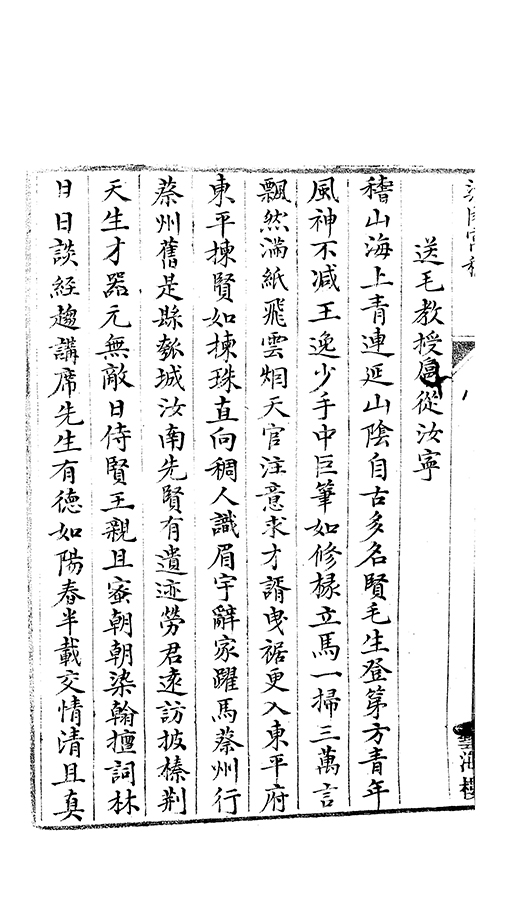 送毛教授扈從汝寧
稽山海上青連延山陰自古多名賢毛生登第方青年
風神不減王逸少手中巨筆如修椽立馬一掃三萬言
飄然滿紙飛雲烟天官注意求才諝曳裾更入東平府
東平揀賢如揀珠直向稠人識眉宇辭家躍馬蔡州行
蔡州舊是縣瓠城汝南先賢有遺迹勞君遠訪披榛荆
天生才器元無敵日侍賢王親且密朝朝染翰擅詞林
日日談經趨講席先生有德如陽春半載交情清且真